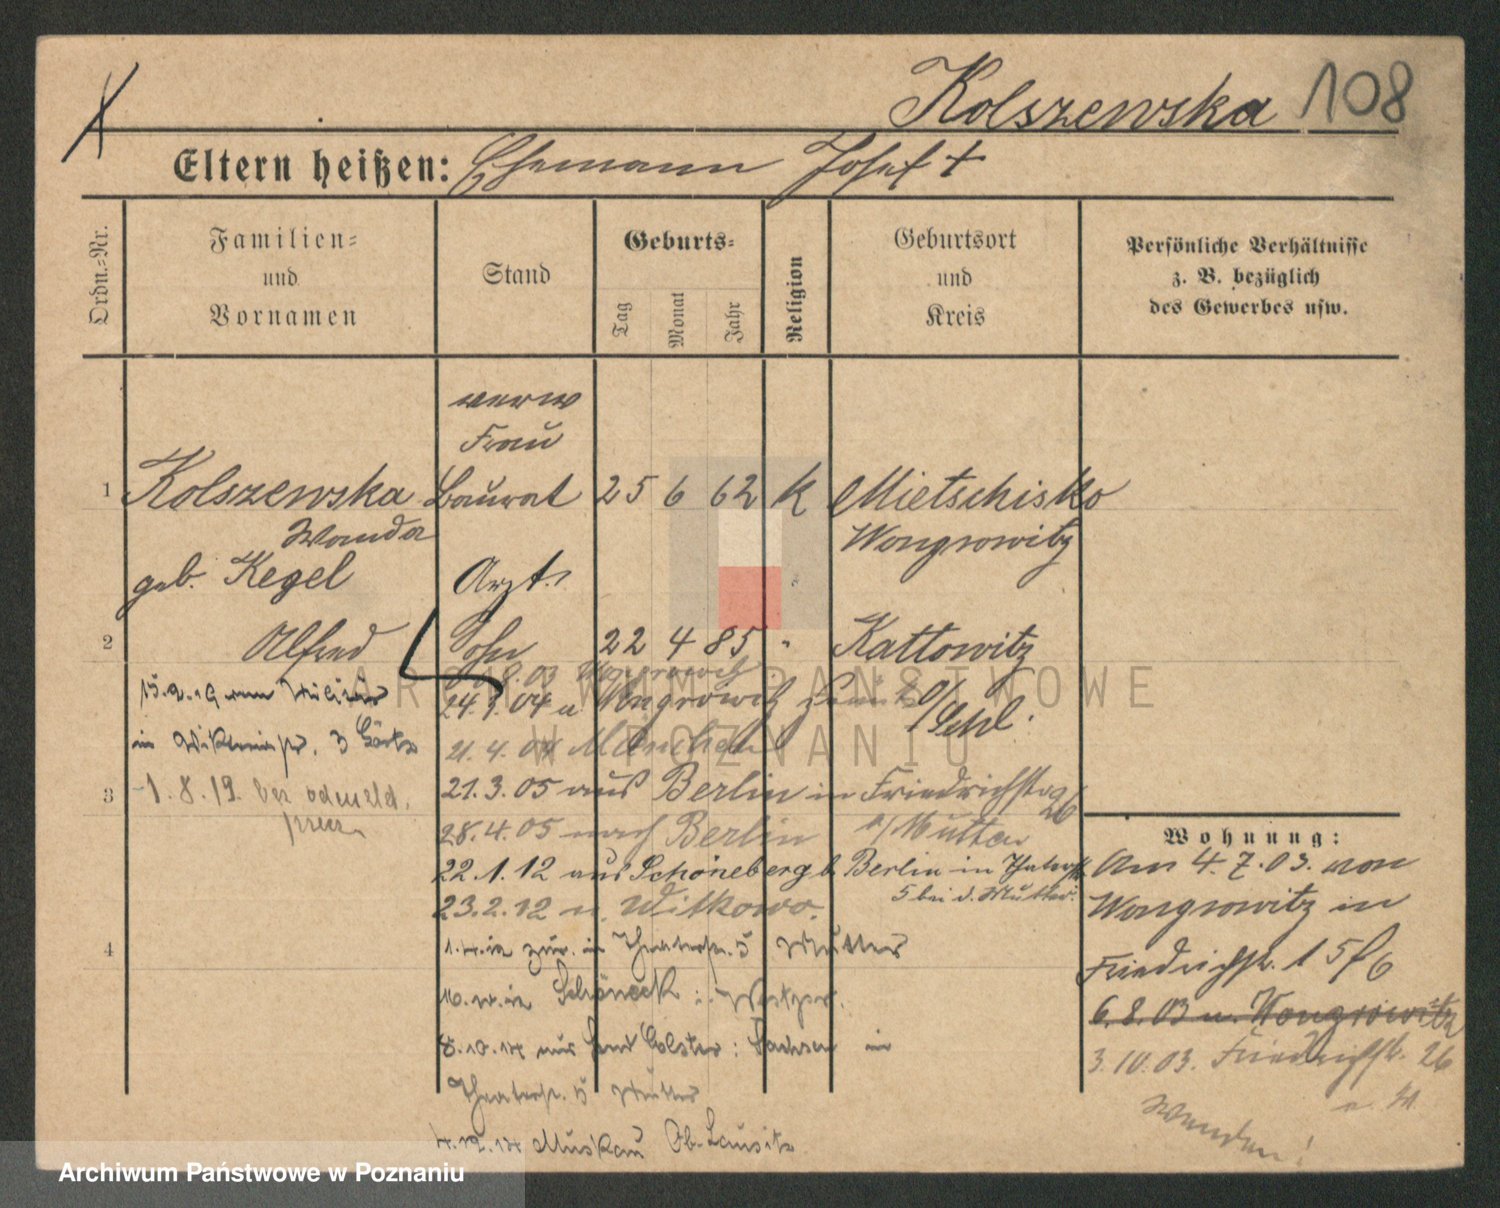 Kolszewska 108
Eltern heißen: Ehemann Josef +
Ordn.=Nr.
Familien=
und
Vornamen
Stand
Geburts=
Tag
Monat
Jahr
Religion
Geburtsort
und
Kreis
Persönliche Verhältnisse
z. B. bezüglich
des Gewerbes usw.
verw
Frau
1 Kolszewska Baurat 25 6 62 K Mietschisko
Wanda Wongrowitz
geb. Kegel Arzt.
2 Alfred Sohn 22 4 85 " Kattowitz
O/Schl.
8.03 Wongrowitz
24.3.04 a Wongrowitz
21.4.04 München
3 21.3.05 aus Berlin in Friedrichstr. 26
b/Mutter
28.4.05 nach Berlin
22.1.12 aus Schöneberg b. Berlin in Theaterstr.
5 bei d. Mutter.
23.2.12 n. Witkowo.
15.2.19 vom Militär
in
1.8.19.
4 1.4.12 zur. in Theaterstr. 5 Mutter
10.4.12 Schöneck i. Westpr.
8.10.14 aus Sachsen in
Theaterstr. 5 Mutter
4.12.14 Muskau Ob-Lausitz
Wohnung:
Am 4.7.03. von
Wongrowitz in
Friedrichstr. 15
6.8.03 n. Wongrowitz
3.10.03. Friedrichstr. 26
Wenden!
ARCHIWUM PAŃSTWOWE
W POZNANIU
Archiwum Państwowe w Poznaniu